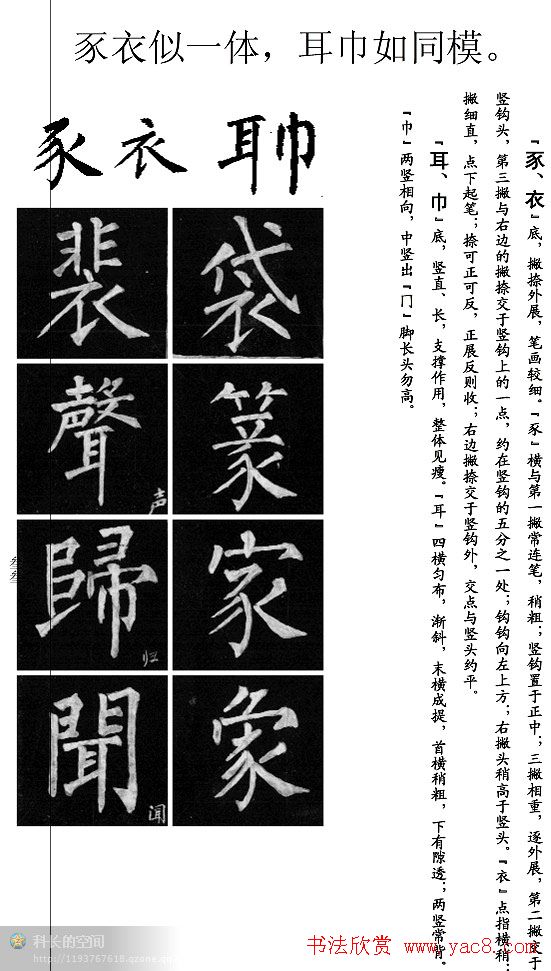 豕衣似一体，耳巾如同模。
豕 衣 耳巾
『豕、衣』底，撇捺外展，笔画较细。『豕』横与第一撇常连笔，稍粗；竖钩置于正中；三撇相重，逐外展，第二撇交于
竖钩头，第三撇与右边的撇捺交于竖钩上的一点，约在竖钩的五分之一处；钩钩向左上方；右撇头稍高于竖头。『衣』点指横稍；
撇细直，点下起笔；捺可正可反，正展反则收；右边撇捺交于竖钩外，交点与竖头约平。
『耳、巾』底，竖直、长，支撑作用，整体见瘦。『耳』四横匀布，渐斜，末横成提，首横稍粗，下有隙透；两竖常背。
『巾』两竖相向，中竖出『冂』脚长头勿高。
裴 袋
聲 声 篆
歸 归 家
聞 闻 象
叁叁
科长的空间
http://1193767618.qzone.qq.com
书法欣赏 www.yac8.com